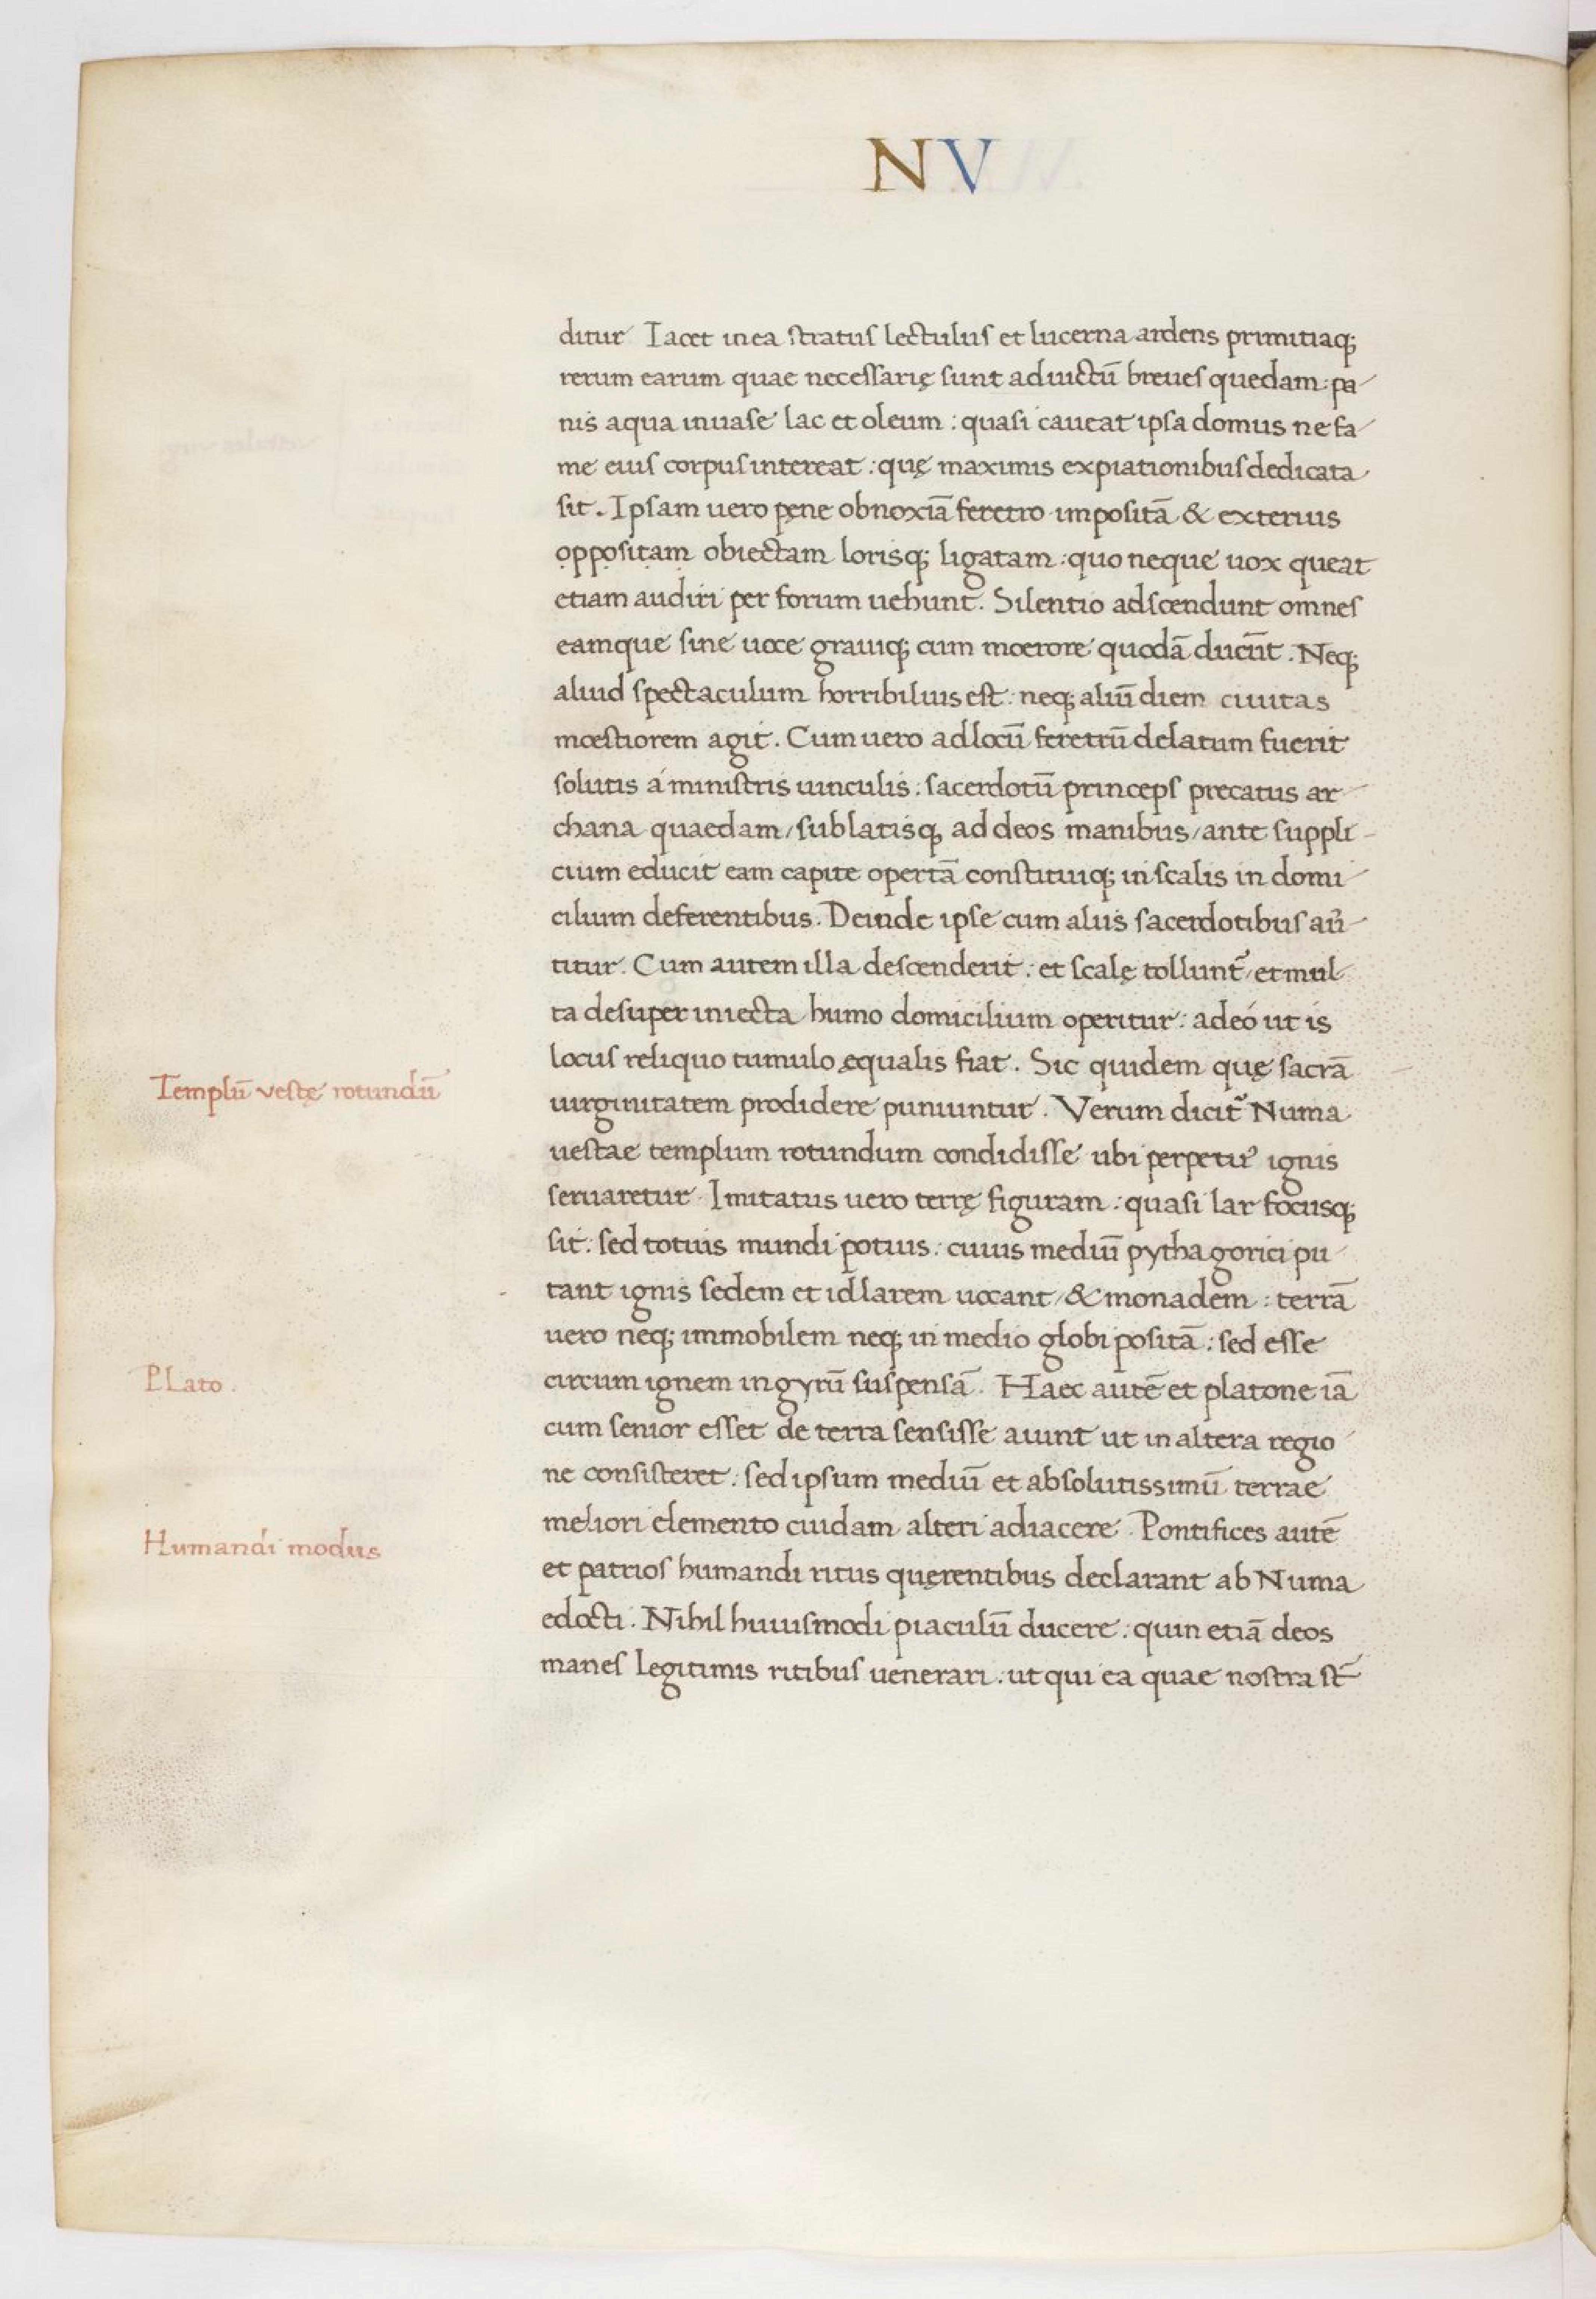 NV
ditur Iacet in ea stratus lectulus et lucerna ardens primitiaq;
rerum earum quae necessarię sunt ad uictū breues quedam: pa
nis aqua in uase lac et oleum : quasi caueat ipsa domus ne fa
me eius corpus intereat : quę maximis expiationibus dedicata
sit. Ipsam uero pęne obnoxiā feretro impositā & exterius
oppositam obiectam lorisq; ligatam : quo neque uox queat
etiam audiri per forum uehunt. Silentio adscendunt omnes
eamque sine uoce grauiq; cum moerore quodā ducūt. Neq;
aliud spectaculum horribilius est : neq; aliū diem ciuitas
moestiorem agit. Cum uero ad locū feretrū delatum fuerit
solutis á ministris uinculis : sacerdotū princeps precatus ar
chana quaedam / sublatisq; ad deos manibus / ante suppli
cium educit eam capite opertā constituiq; in scalis in domi
cilium deferentibus. Deinde ipse cum aliis sacerdotibus aū
titur. Cum autem illa descenderit : et scalę tollunt᷑ / et mul
ta desuper iniecta humo domicilium operitur : adeó ut is
Templū vestę rotundū
locus reliquo tumulo ęqualis fiat. Sic quidem quę sacrā
uirginitatem prodidere puniuntur. Verum dicit᷑ Numa
uestae templum rotundum condidisse ubi perpetuꝰ ignis
seruaretur Imitatus uero terrę figuram : quasi lar focusq;
sit : sed totius mundi potius : cuius mediū pythagorici pu
tant ignis sedem et id larem uocant / & monadem : terrā
uero neq; immobilem neq; in medio globi positā : sed esse
Plato.
circum ignem in gyrū suspensā. Haec autē et platone iā
cum senior esset de terra sensisse aiunt ut in altera regio
ne consisteret : sed ipsum mediū et absolutissimū terrae
meliori elemento cuidam alteri adiacere. Pontifices autē
Humandi modus
et patrios humandi ritus quęrentibus declarant ab Numa
edocti. Nihil huiusmodi piaculū ducere : quin etiā deos
manes legitimis ritibus uenerari : ut qui ea quae nostra st̄